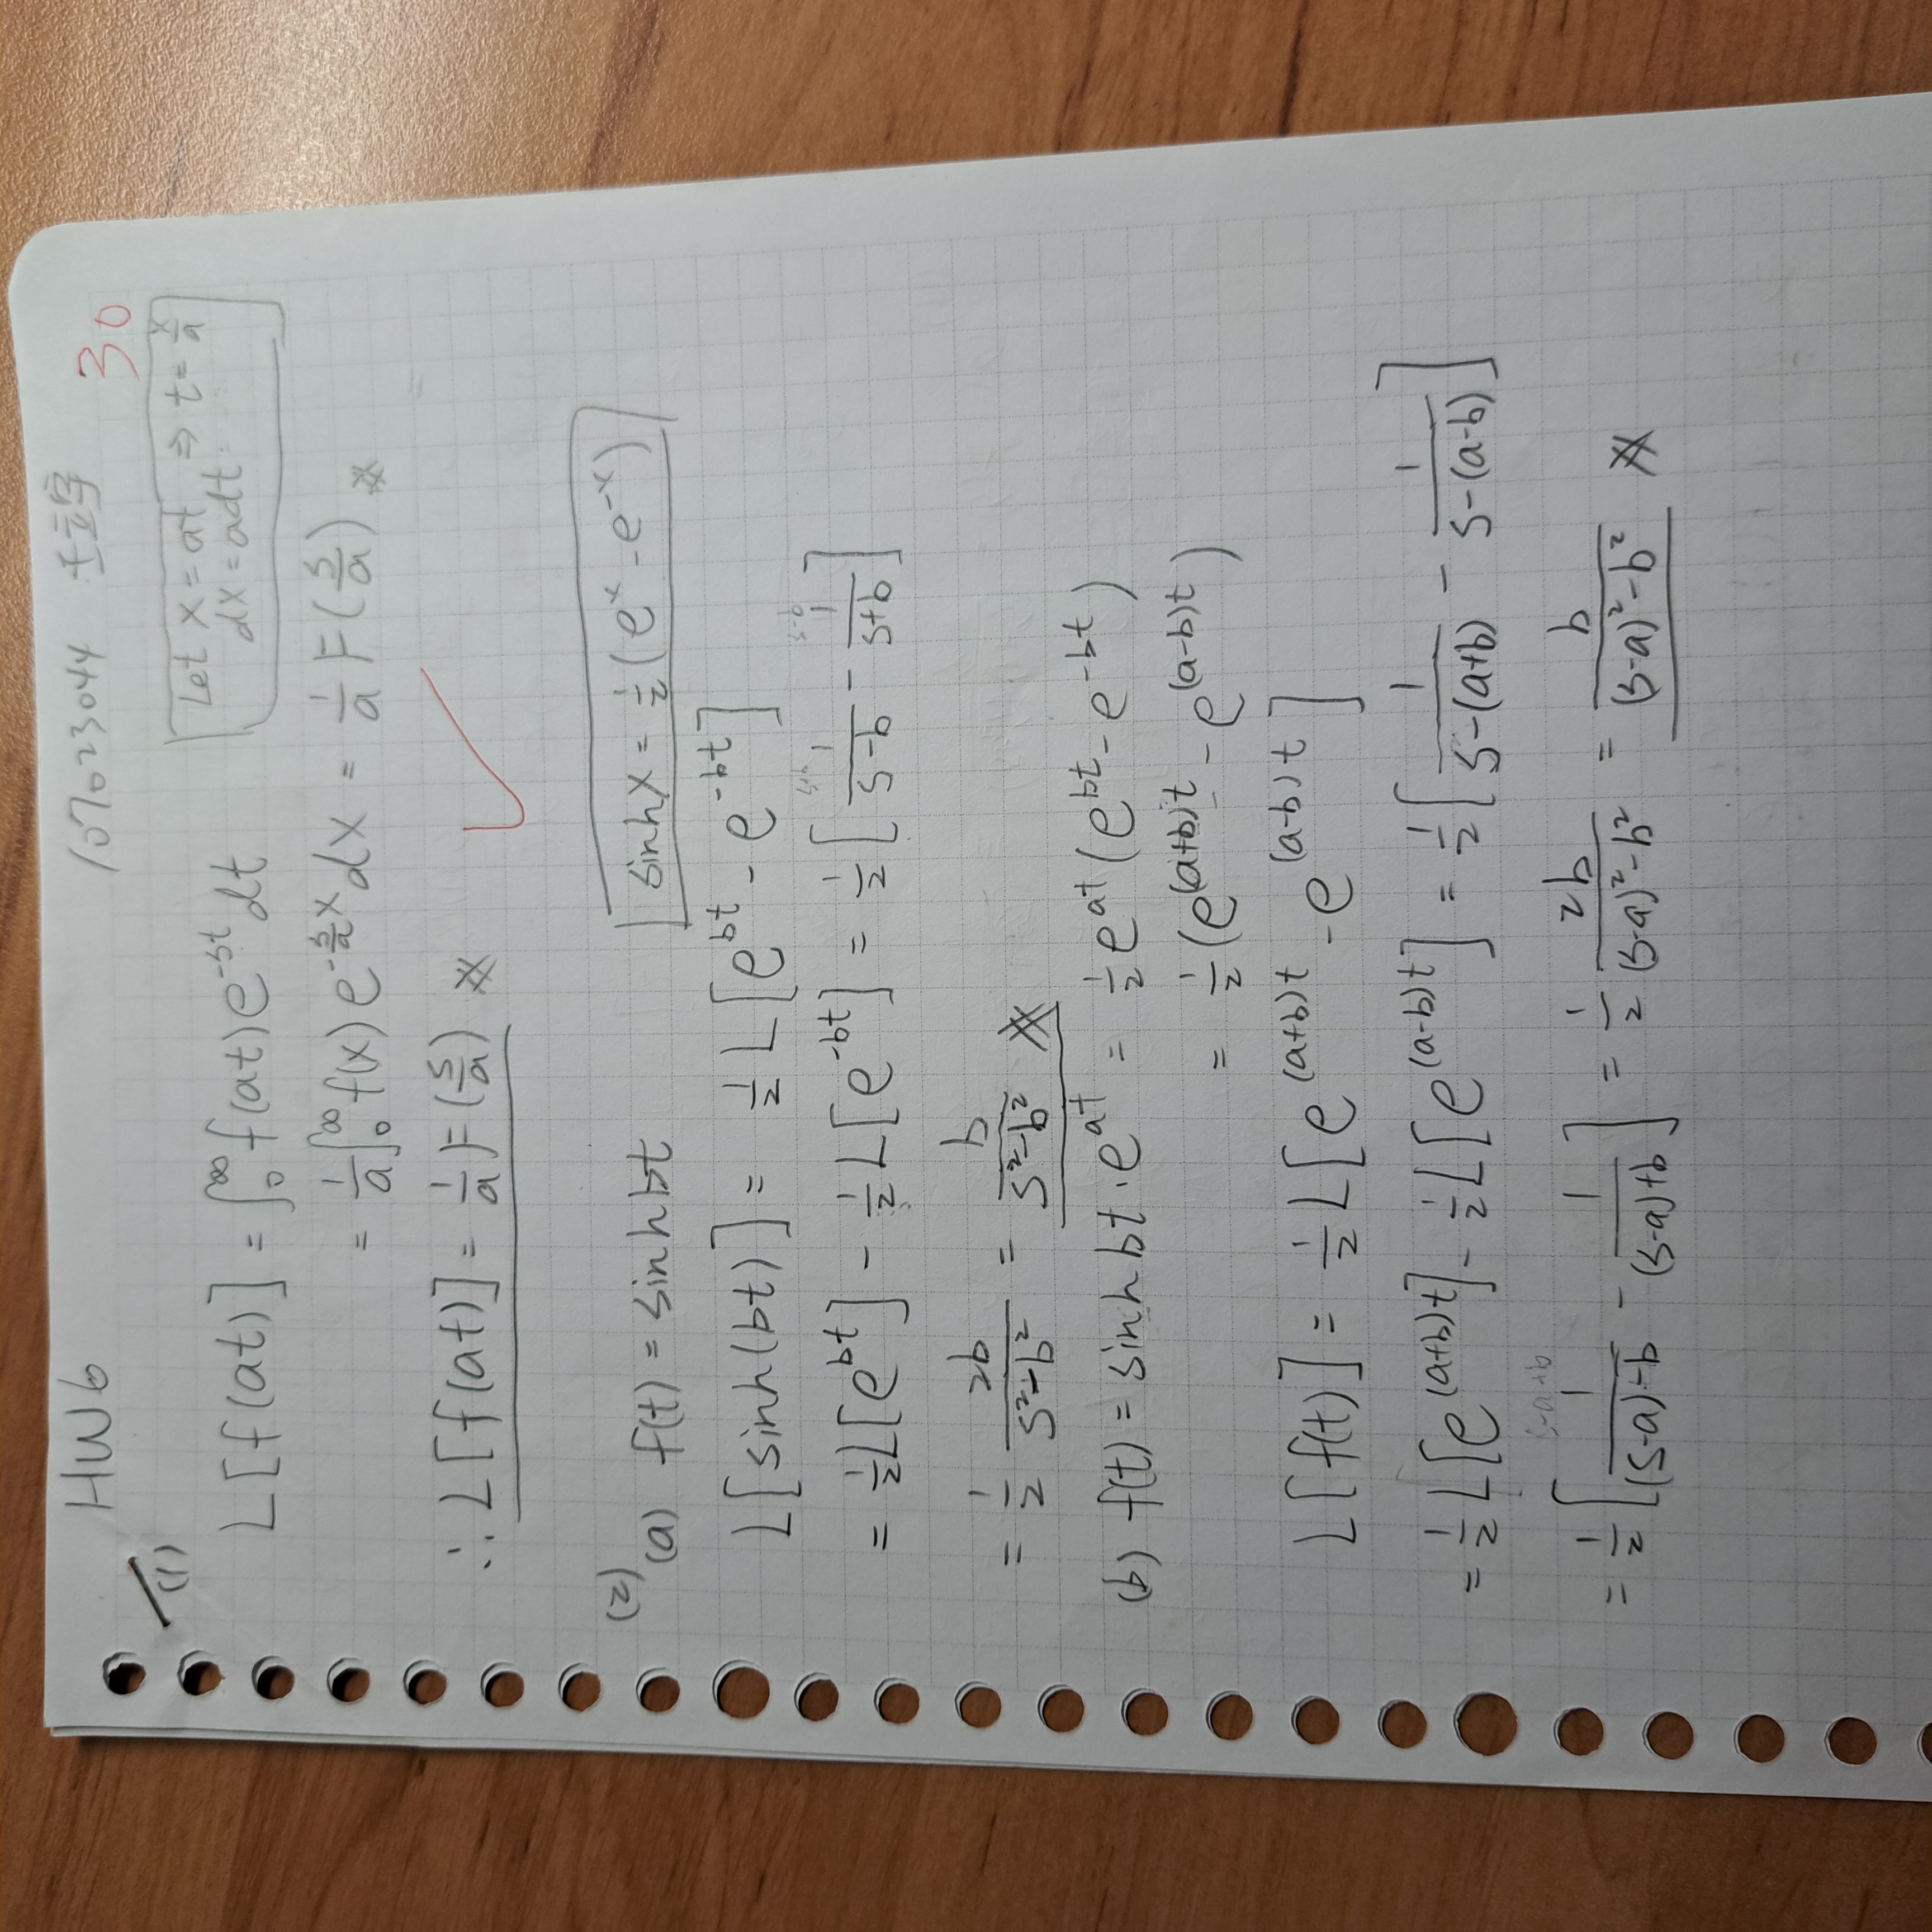 HW6 107023044 王立宇 30
(1)
Let x = at ⇒ t = x/a
dx = adt
L[f(at)] = ∫₀^∞ f(at) e^(-st) dt
= 1/a ∫₀^∞ f(x) e^(-(s/a)x) dx = 1/a F(s/a) ※
∴ L[f(at)] = 1/a F(s/a) ※ ✓
(2)
(a) f(t) = sinh bt sinh x = 1/2 (e^x - e^(-x))
L[sinh(bt)] = 1/2 L[e^(bt) - e^(-bt)]
s+b s-b
= 1/2 L[e^(bt)] - 1/2 L[e^(-bt)] = 1/2 [1/(s-b) - 1/(s+b)]
= 1/2 2b/(s²-b²) = b/(s²-b²) ※
(b) f(t) = sinh bt · e^(at) = 1/2 e^(at) (e^(bt) - e^(-bt))
= 1/2 (e^((a+b)t) - e^((a-b)t))
L[f(t)] = 1/2 L[e^((a+b)t) - e^((a-b)t)]
= 1/2 L[e^((a+b)t)] - 1/2 L[e^((a-b)t)] = 1/2 [1/(s-(a+b)) - 1/(s-(a-b))]
s-a+b
= 1/2 [1/((s-a)-b) - 1/((s-a)+b)] = 1/2 2b/((s-a)²-b²) = b/((s-a)²-b²) ※